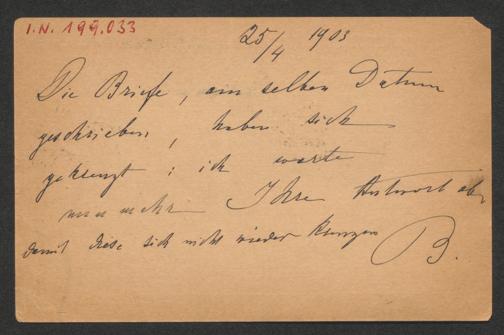 I.N. 199.033
25/4 1903
Die Briefe, am selben Datum
geschrieben, haben sich
gekreuzt; ich warte
nunmehr Ihre Antwort ab,
damit diese sich nicht wieder kreuzen
B.